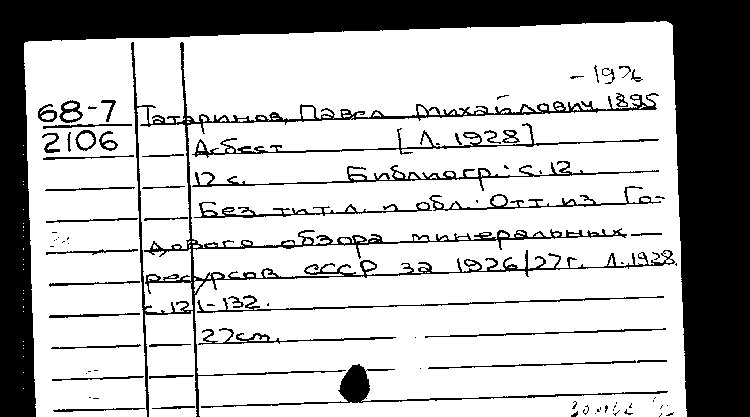 - 1976
68-7 Татаринов, Павел Михайлович, 1895
2106 Асбест [Л. 1928]
12 с. Библиогр.: с. 12.
Без тит. л. и обл. Отт. из Го-
дового обзора минеральных
ресурсов СССР за 1926/27 г. Л. 1928
с. 121-132.
27 cm.